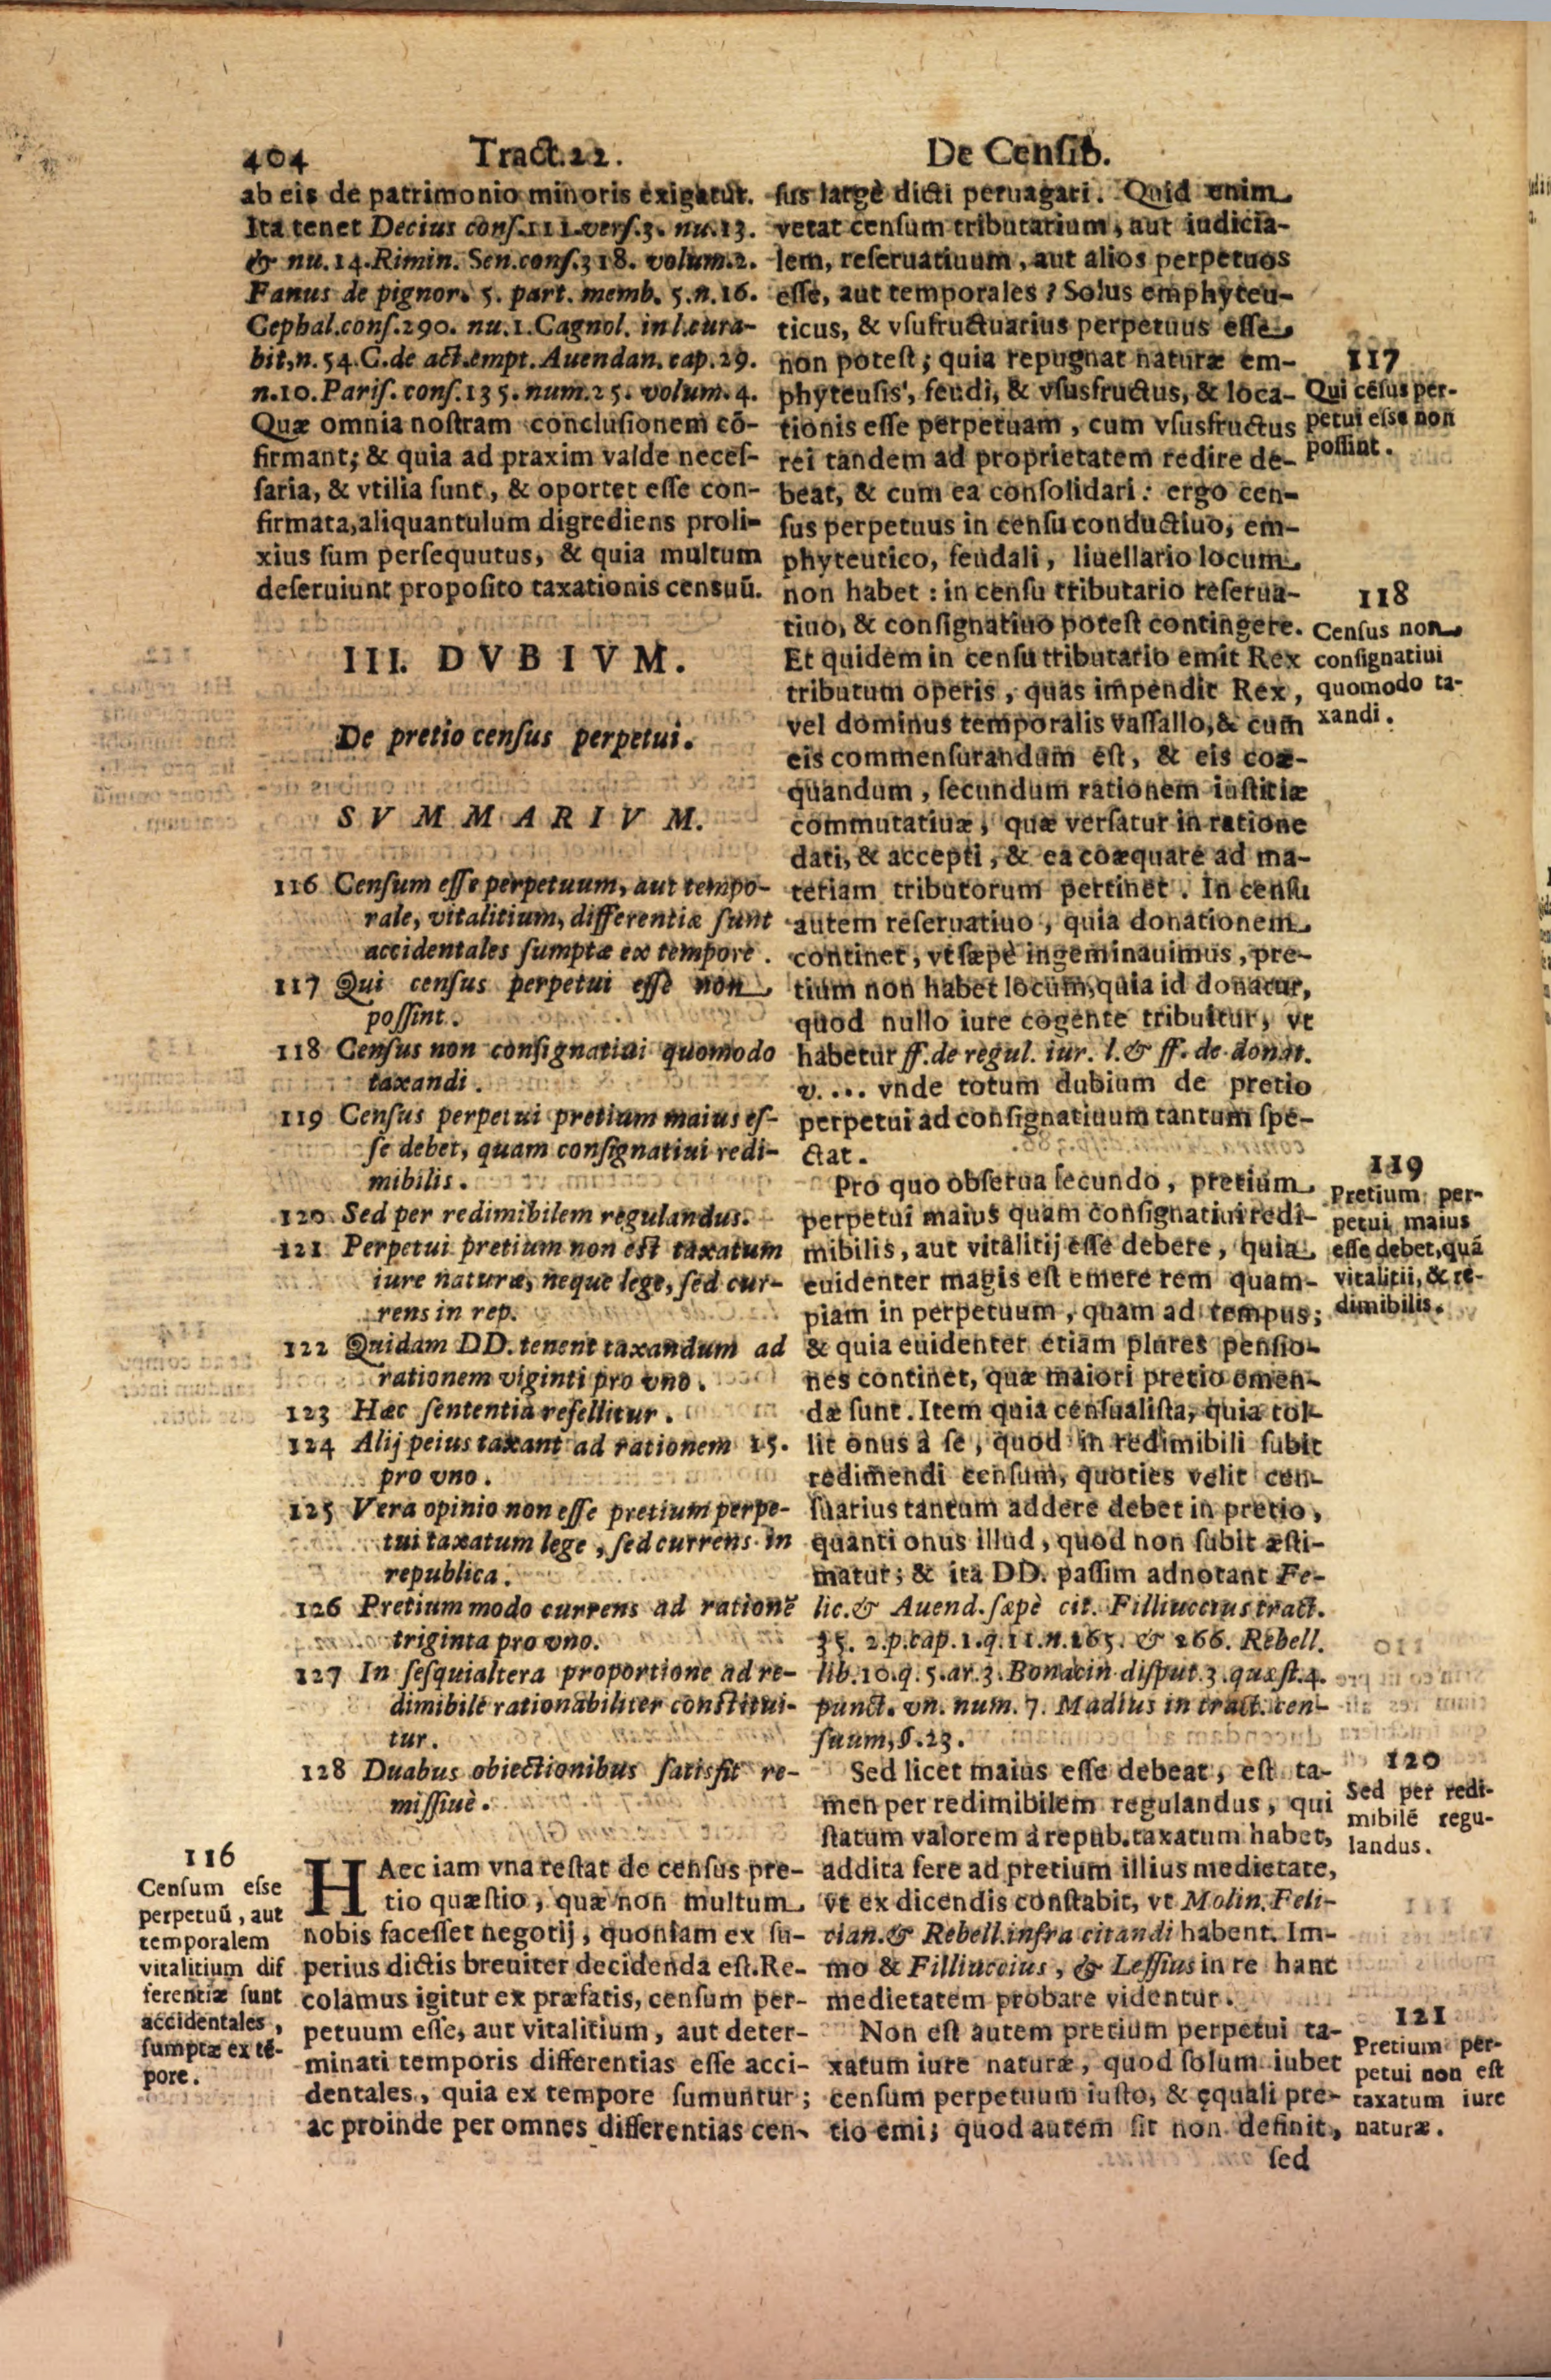 404 Tract.22. De Censib.
ab eis de patrimonio minoris exigatur.
Ita tenet Decius cons.111.vers.3. nu.13.
& nu.14.Rimin. Sen.cons.318. volum.2.
Fanus de pignor. 5. part. memb. 5.n.16.
Cephal.cons.290. nu.1.Cagnol. in l.cura-
bit,n.54.C.de act.empt.Auendan.cap.29.
n.10.Paris.cons.135.num.25. volum.4.
Quæ omnia nostram conclusionem cō-
firmant; & quia ad praxim valde neces-
saria, & vtilia sunt, & oportet esse con-
firmata,aliquantulum digrediens proli-
xius sum persequutus, & quia multum
deseruiunt proposito taxationis censuū.
III. DVBIVM.
De pretio census perpetui.
SVMMARIVM.
116 Censum esse perpetuum, aut tempo-
rale, vitalitium, differentiæ sunt
accidentales sumptæ ex tempore.
117 Qui census perpetui esse non
possint.
118 Census non consignatiui quomodo
taxandi.
119 Census perpetui pretium maius es-
se debet, quam consignatiui redi-
mibilis.
120 Sed per redimibilem regulandus.
121 Perpetui pretium non est taxatum
iure naturæ, neque lege, sed cur-
rens in rep.
122 Quidam DD. tenent taxandum ad
rationem viginti pro vno.
123 Hæc sententia refellitur.
124 Alij peius taxant ad rationem 15.
pro vno.
125 Vera opinio non esse pretium perpe-
tui taxatum lege, sed currens in
republica.
126 Pretium modo currens ad rationē
triginta pro vno.
127 In sesquialtera proportione ad re-
dimibile rationabiliter constitui-
tur.
128 Duabus obiectionibus satisfit re-
missiuè.
116
Censum esse
perpetuū, aut
temporalem
vitalitium dif
ferentiæ sunt
accidentales,
sumptæ ex tē-
pore.
HAec iam vna restat de census pre-
tio quæstio, quæ non multum
nobis facesset negotij, quoniam ex su-
perius dictis breuiter decidenda est.Re-
colamus igitur ex præfatis, censum per-
petuum esse, aut vitalitium, aut deter-
minati temporis differentias esse acci-
dentales, quia ex tempore sumuntur;
ac proinde per omnes differentias cen-
sus largè dicti peruagari. Quid enim
vetat censum tributarium, aut iudicia-
lem, reseruatiuum, aut alios perpetuos
esse, aut temporales? Solus emphyteu-
ticus, & vsufructuarius perpetuus esse
non potest; quia repugnat naturæ em-
phyteusis, feudi, & vsusfructus, & loca-
tionis esse perpetuam, cum vsusfructus
rei tandem ad proprietatem redire de-
beat, & cum ea consolidari: ergo cen-
sus perpetuus in censu conductiuo, em-
phyteutico, feudali, liuellario locum
non habet: in censu tributario reserua-
tiuo, & consignatiuo potest contingere.
Et quidem in censu tributario emit Rex
tributum operis, quas impendit Rex,
vel dominus temporalis vassallo,& cum
eis commensurandum est, & eis coæ-
quandum, secundum rationem iustitiæ
commutatiuæ, quæ versatur in ratione
dati, & accepti, & ea coæquare ad ma-
teriam tributorum pertinet. In censu
autem reseruatiuo, quia donationem
continet, vt sæpè ingeminauimus, pre-
tium non habet locum,quia id donatur,
quod nullo iure cogente tribuitur, vt
habetur ff.de regul. iur. l.& ff. de donat.
v.... vnde totum dubium de pretio
perpetui ad consignatiuum tantum spe-
ctat.
Pro quo obserua secundo, pretium
perpetui maius quam consignatiui redi-
mibilis, aut vitalitij esse debere, quia
euidenter magis est emere rem quam-
piam in perpetuum, quam ad tempus;
& quia euidenter etiam plures pensio-
nes continet, quæ maiori pretio emen-
dæ sunt. Item quia censualista, quia tol-
lit onus à se, quod in redimibili subit
redimendi censum, quoties velit cen-
suarius tantum addere debet in pretio,
quanti onus illud, quod non subit æsti-
matur; & ita DD. passim adnotant Fe-
lic.& Auend.sæpè cit. Filliuccius tract.
35. 2.p.cap.1.q.11.n.265. & 266. Rebell.
lib.10.q.5.ar.3.Bonacin disput.3.quæst.4.
punct. vn. num. 7. Madius in tract. cen-
suum,§.23.
Sed licet maius esse debeat, est ta-
men per redimibilem regulandus, qui
statum valorem à repub.taxatum habet,
addita fere ad pretium illius medietate,
vt ex dicendis constabit, vt Molin.Feli-
cian.& Rebell.infra citandi habent. Im-
mo & Filliuccius, & Lessius in re hanc
medietatem probare videntur.
Non est autem pretium perpetui ta-
xatum iure naturæ, quod solum iubet
censum perpetuum iusto, & ęquali pre-
tio emi; quod autem sit non definit,
sed
117
Qui cēsus per-
petui esse non
possint.
118
Census non
consignatiui
quomodo ta-
xandi.
119
Pretium per-
petui maius
esse debet,quā
vitalitii, & re-
dimibilis.
120
Sed per redi-
mibilē regu-
landus.
121
Pretium per-
petui non est
taxatum iure
naturæ.